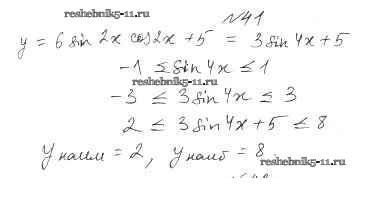 reshebnik5-11.ru
№41
y = 6 sin 2x cos 2x + 5 = 3 sin 4x + 5
-1 ≤ sin 4x ≤ 1
reshebnik5-11.ru
-3 ≤ 3 sin 4x ≤ 3
2 ≤ 3 sin 4x + 5 ≤ 8
y наим = 2, y наиб = 8
reshebnik5-11.ru